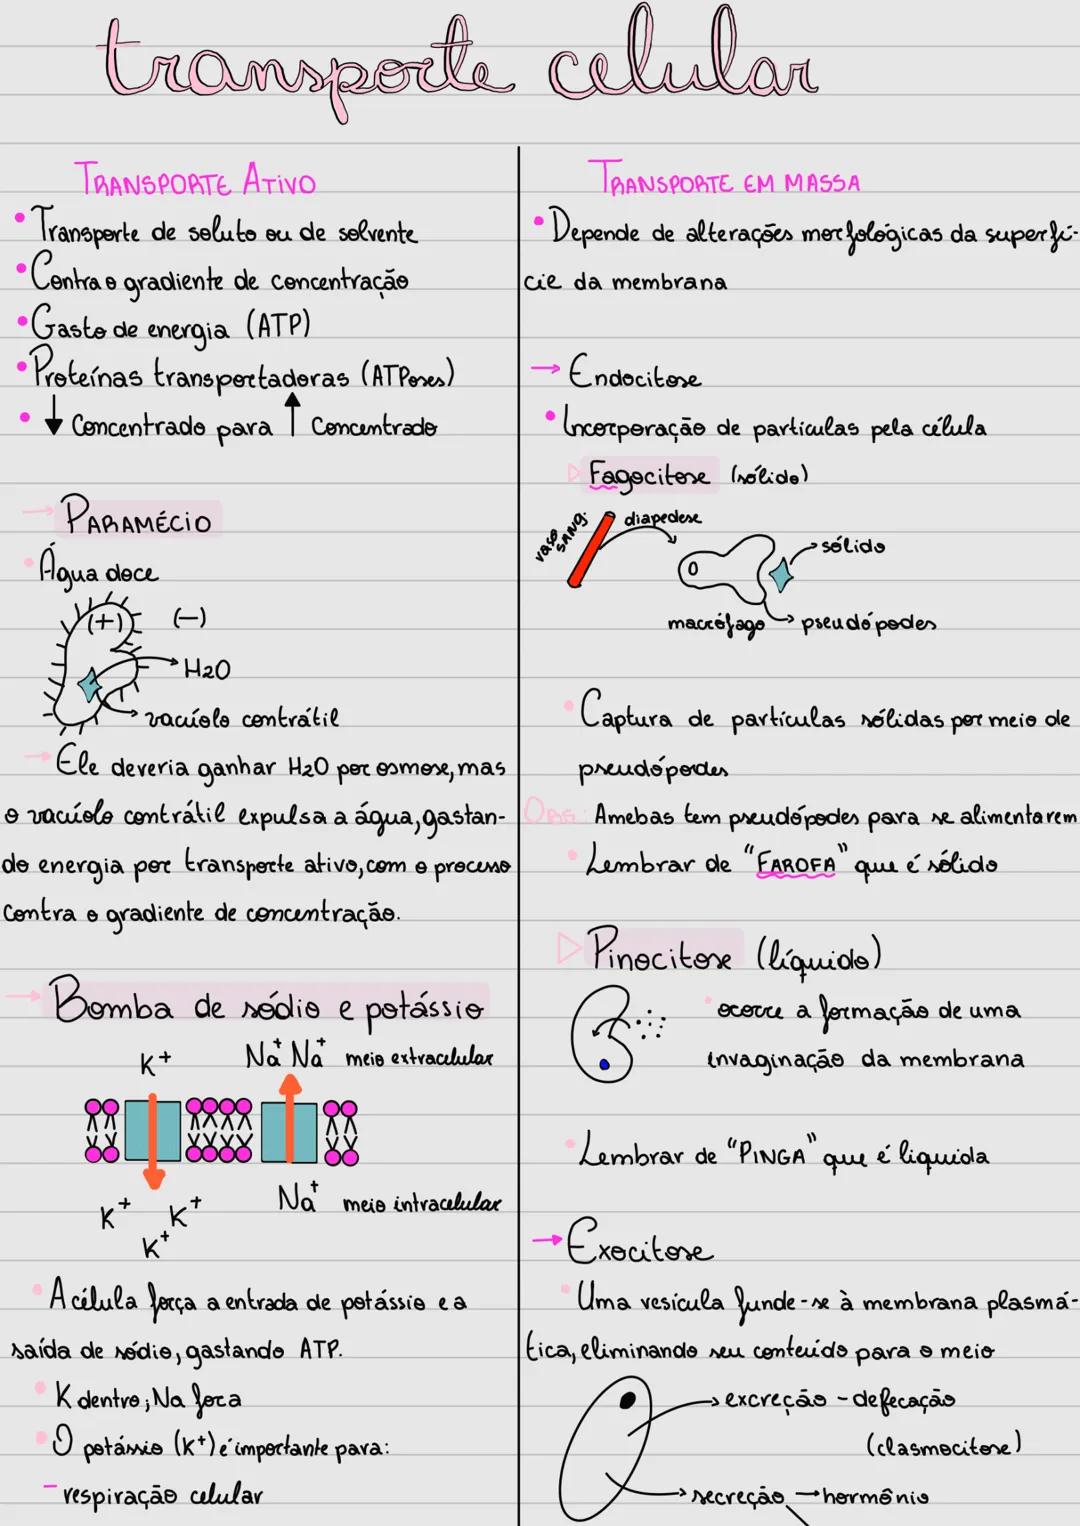 transporte celular
TRANSPORTE ATIVO
• Transporte de soluto ou de solvente
• Contra o gradiente de concentração
• Gasto de energia (ATP)
• Proteínas transportadoras (ATPases)
• ↓ Concentrado para ↑ Concentrado
→ PARAMÉCIO
• Água doce
(+) (−)
H2O
vacúolo contrátil
→ Ele deveria ganhar H2O por osmose, mas
o vacúolo contrátil expulsa a água, gastan-
do energia por transporte ativo, com o processo
contra o gradiente de concentração.
→ Bomba de sódio e potássio
K+ Na+ Na+ meio extracelular
Na+ meio intracelular
K+ K+
K+
• A célula força a entrada de potássio e a
saída de sódio, gastando ATP.
• K dentro; Na fora
• O potássio (K+) é importante para:
- respiração celular
TRANSPORTE EM MASSA
• Depende de alterações morfológicas da superfí-
cie da membrana
→ Endocitose
• Incorporação de partículas pela célula
▷ Fagocitose (sólido)
vaso
SANG.
diapedese
sólido
macrófago → pseudópodes
• Captura de partículas sólidas por meio de
pseudópodes
OBS: Amebas tem pseudópodes para se alimentarem
• Lembrar de "FAROFA" que é sólido
▷ Pinocitose (líquido)
• ocorre a formação de uma
invaginação da membrana
• Lembrar de "PINGA" que é liquida
→ Exocitose
• Uma vesícula funde-se à membrana plasmá-
tica, eliminando seu conteúdo para o meio
→ excreção - defecação
(clasmocitose)
→ secreção → hormônio